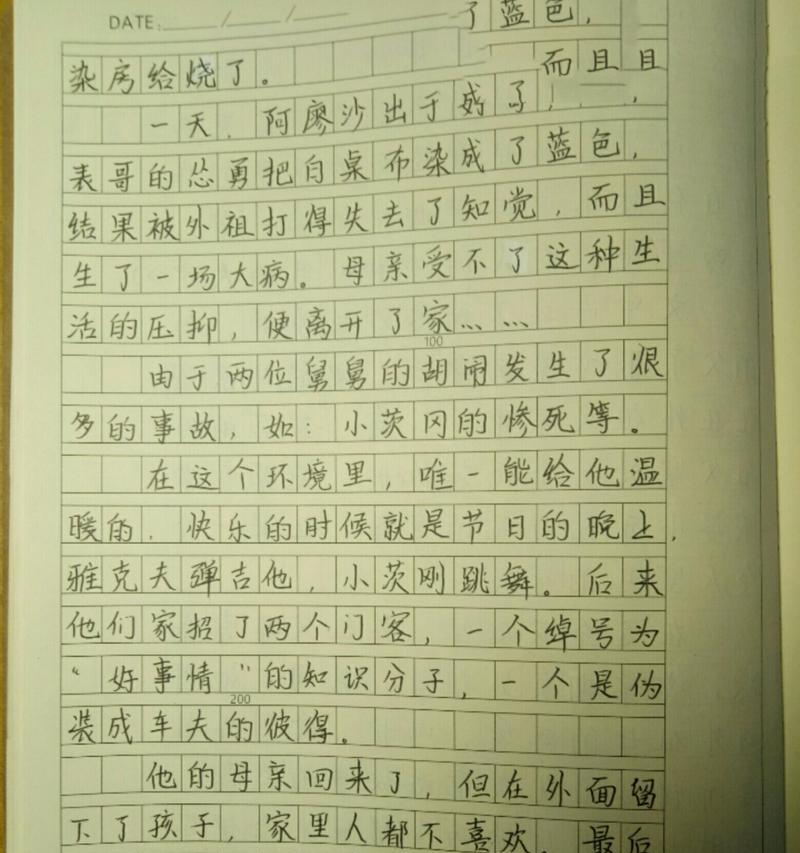 DATE:
了蓝色，
染房给烧了。
而且且
一天，阿廖沙出于好了，
表哥的怂勇把白桌布染成了蓝色，
结果被外祖打得失去了知觉，而且
生了一场大病。母亲受不了这种生
活的压抑，便离开了家……
100
由于两位舅舅的胡闹发生了很
多的事故，如：小茨冈的惨死等。
在这个环境里，唯一能给他温
暖的．快乐的时候就是节日的晚上，
雅克夫弹吉他，小茨刚跳舞。后来
他们家招了两个门客，一个绰号为
“好事情”的知识分子，一个是伪
200
装成车夫的彼得。
他的母亲回来了，但在外面留
下了孩子，家里人都不喜欢．最后